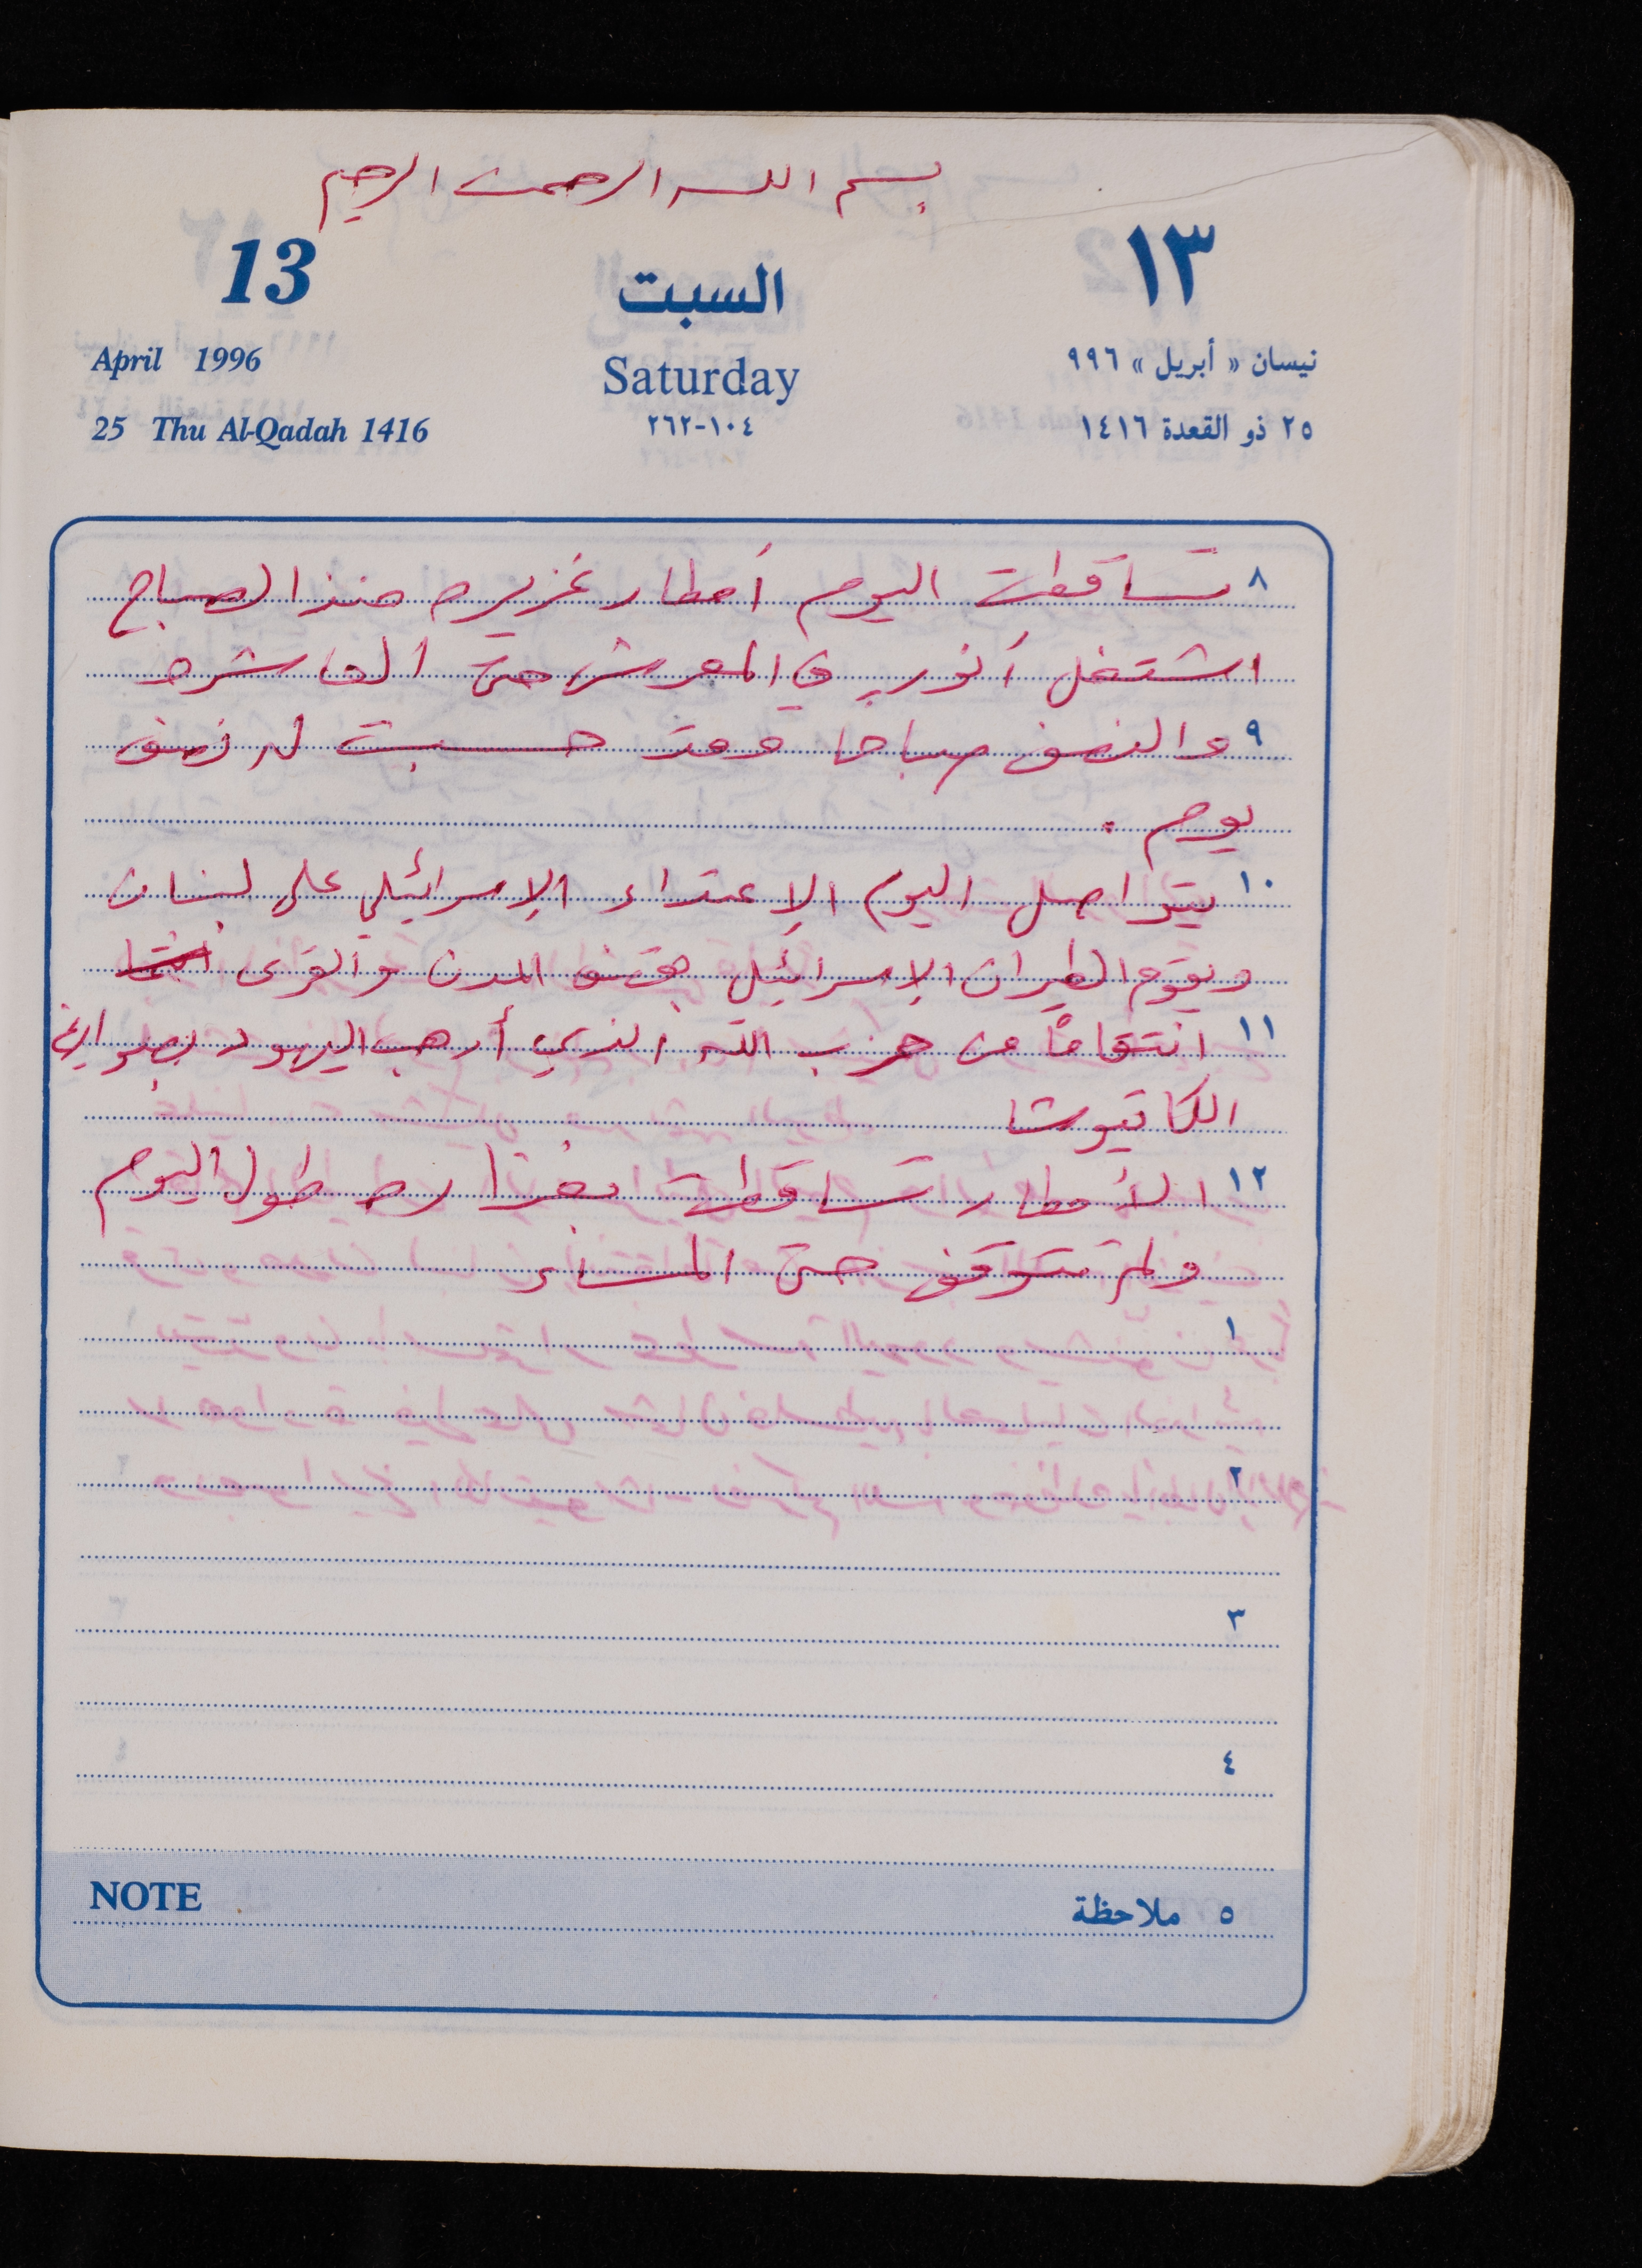 بسم الله الرحمن الرحيم
13 السبت ١٣
April 1996 Saturday نيسان « أبريل » ٩٩٦
25 Thu Al-Qadah 1416 ٢٦٢-١٠٤ ٢٥ ذو القعدة ١٤١٦
٨ تساقطت اليوم أمطار غزيره منذ الصباح
اشتغل أنور في المعرش حتى العاشره
٩ والنصف صباحا وقد حسبت له نصف
يوم .
١٠ يتواصل اليوم الإعتداء الإسرائيلي على لبنان
ويقوم الطيران الإسرائيلي بقصف المدن والقرى
١١ انتقاماً من حزب الله الذي أرهب اليهود بصواريخ
الكاتيوشا
١٢ الأمطار تساقطت بغزاره طول اليوم
ولم تتوقف حتى المساء
١
٢
٣
٤
NOTE ٥ ملاحظة